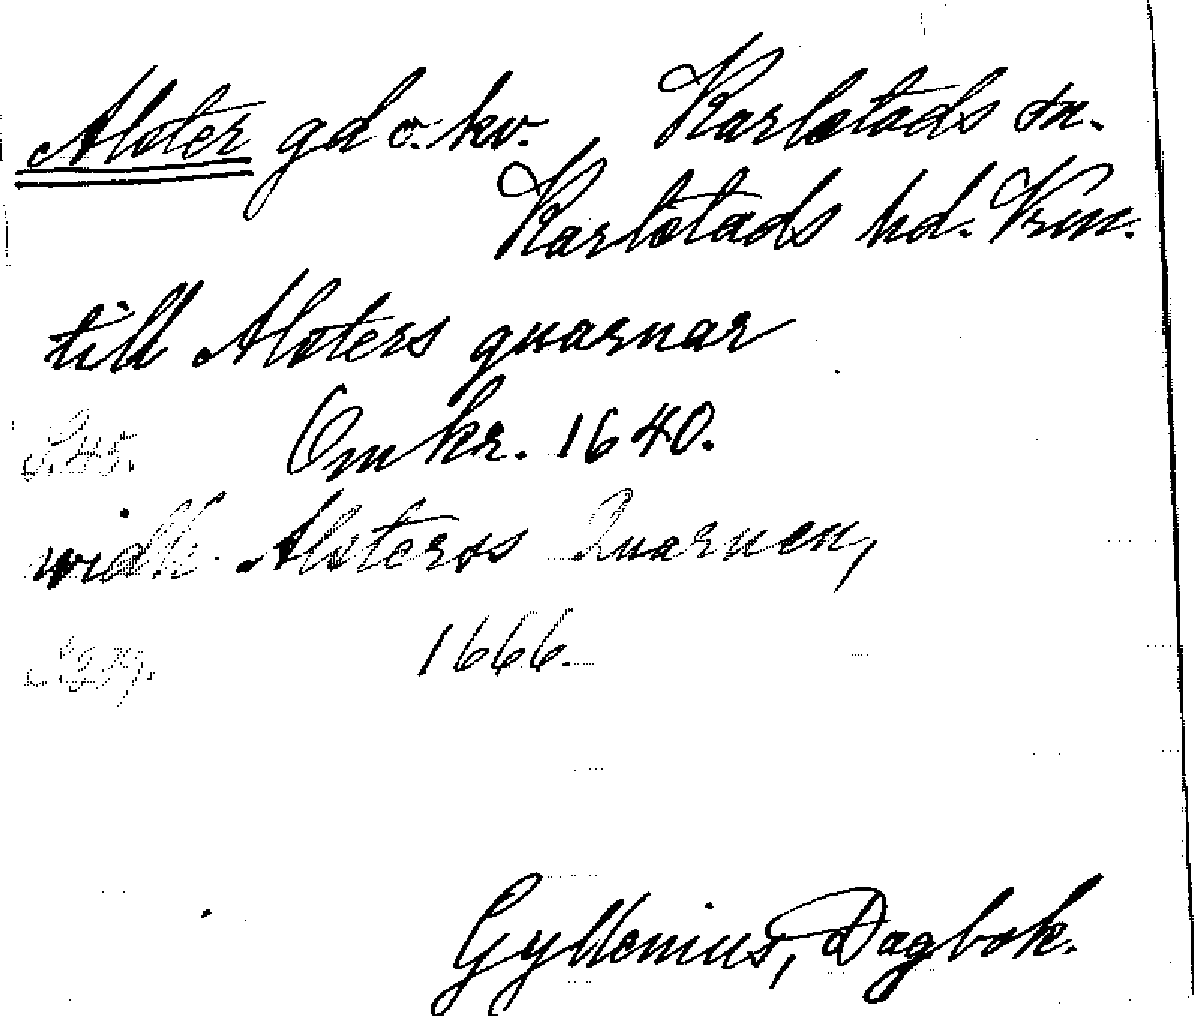 Alster gd o. kv. Karlstads sn.
Karlstads hd. Krm.
till Alsters quarnar
S. 45. Omkr. 1640.
widh Alsteros Quarnen,
S. 239. 1666.
Gyllenius, Dagbok.